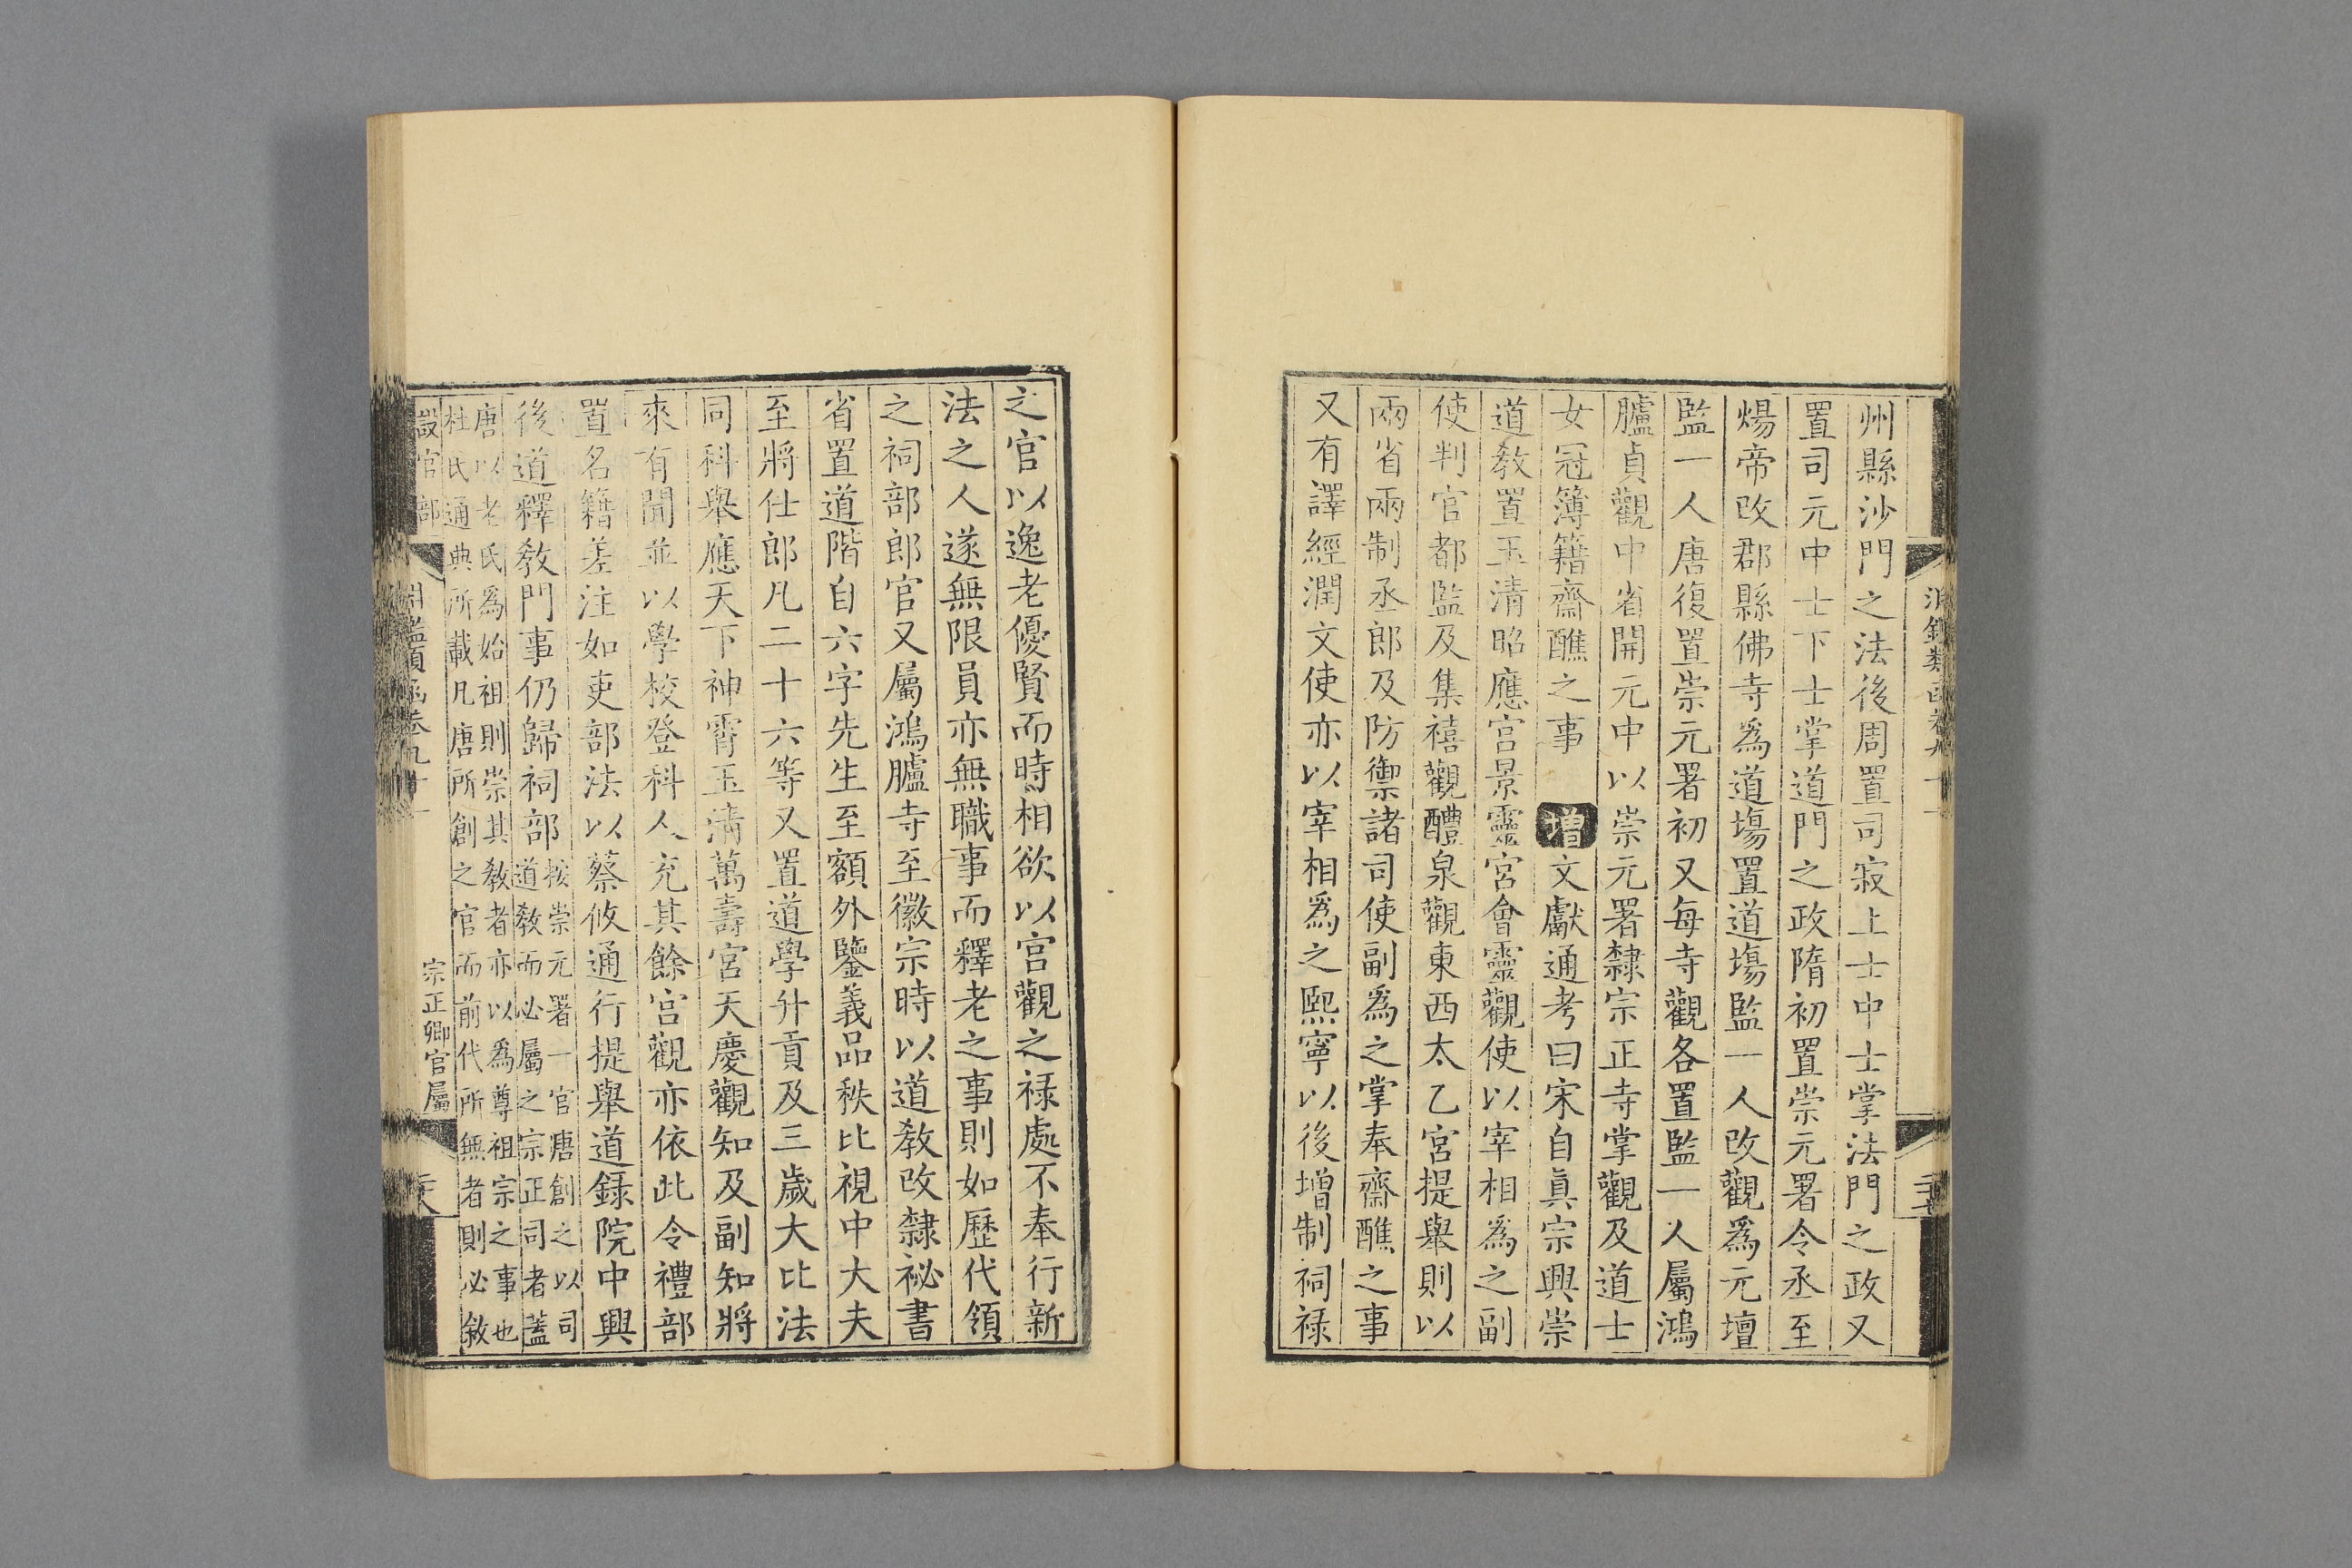 州縣沙門之法後周置司寂上士中士掌法門之政又
置司元中士下士掌道門之政隋初置崇元署令丞至
煬帝改郡縣佛寺爲道塲置道塲監一人改觀爲元壇
監一人唐復置崇元署初又每寺觀各置監一人屬鴻
臚貞觀中省開元中以崇元署隸宗正寺掌觀及道士
女冠簿籍齋醮之事 增文獻通考曰宋自眞宗興崇
道教置玉清昭應宮景靈宮會靈觀使以宰相爲之副
使判官都監及集禧觀醴泉觀東西太乙宮提舉則以
兩省兩制丞郎及防禦諸司使副爲之掌奉齋醮之事
又有譯經潤文使亦以宰相爲之熙寧以後增制祠祿
之官以逸老優賢而時相欲以宮觀之祿處不奉行新
法之人遂無限員亦無職事而釋老之事則如歷代領
之祠部郎官又屬鴻臚寺至徽宗時以道教改隸祕書
省置道階自六字先生至額外鑒義品秩比視中大夫
至將仕郎凡二十六等又置道學升貢及三歲大比法
同科舉應天下神霄玉清萬壽宮天慶觀知及副知將
來有聞並以學校登科人充其餘宮觀亦依此令禮部
置名籍差注如吏部法以蔡攸通行提舉道錄院中興
後道釋教門事仍歸祠部按崇元署一官唐創之以司
道教而必屬之宗正司者蓋
唐以老氏爲始祖則崇其教者亦以爲尊祖宗之事也
杜氏通典所載凡唐所創之官而前代所無者則必敘
設官部 淵鑑類函卷九十一 宗正卿官屬